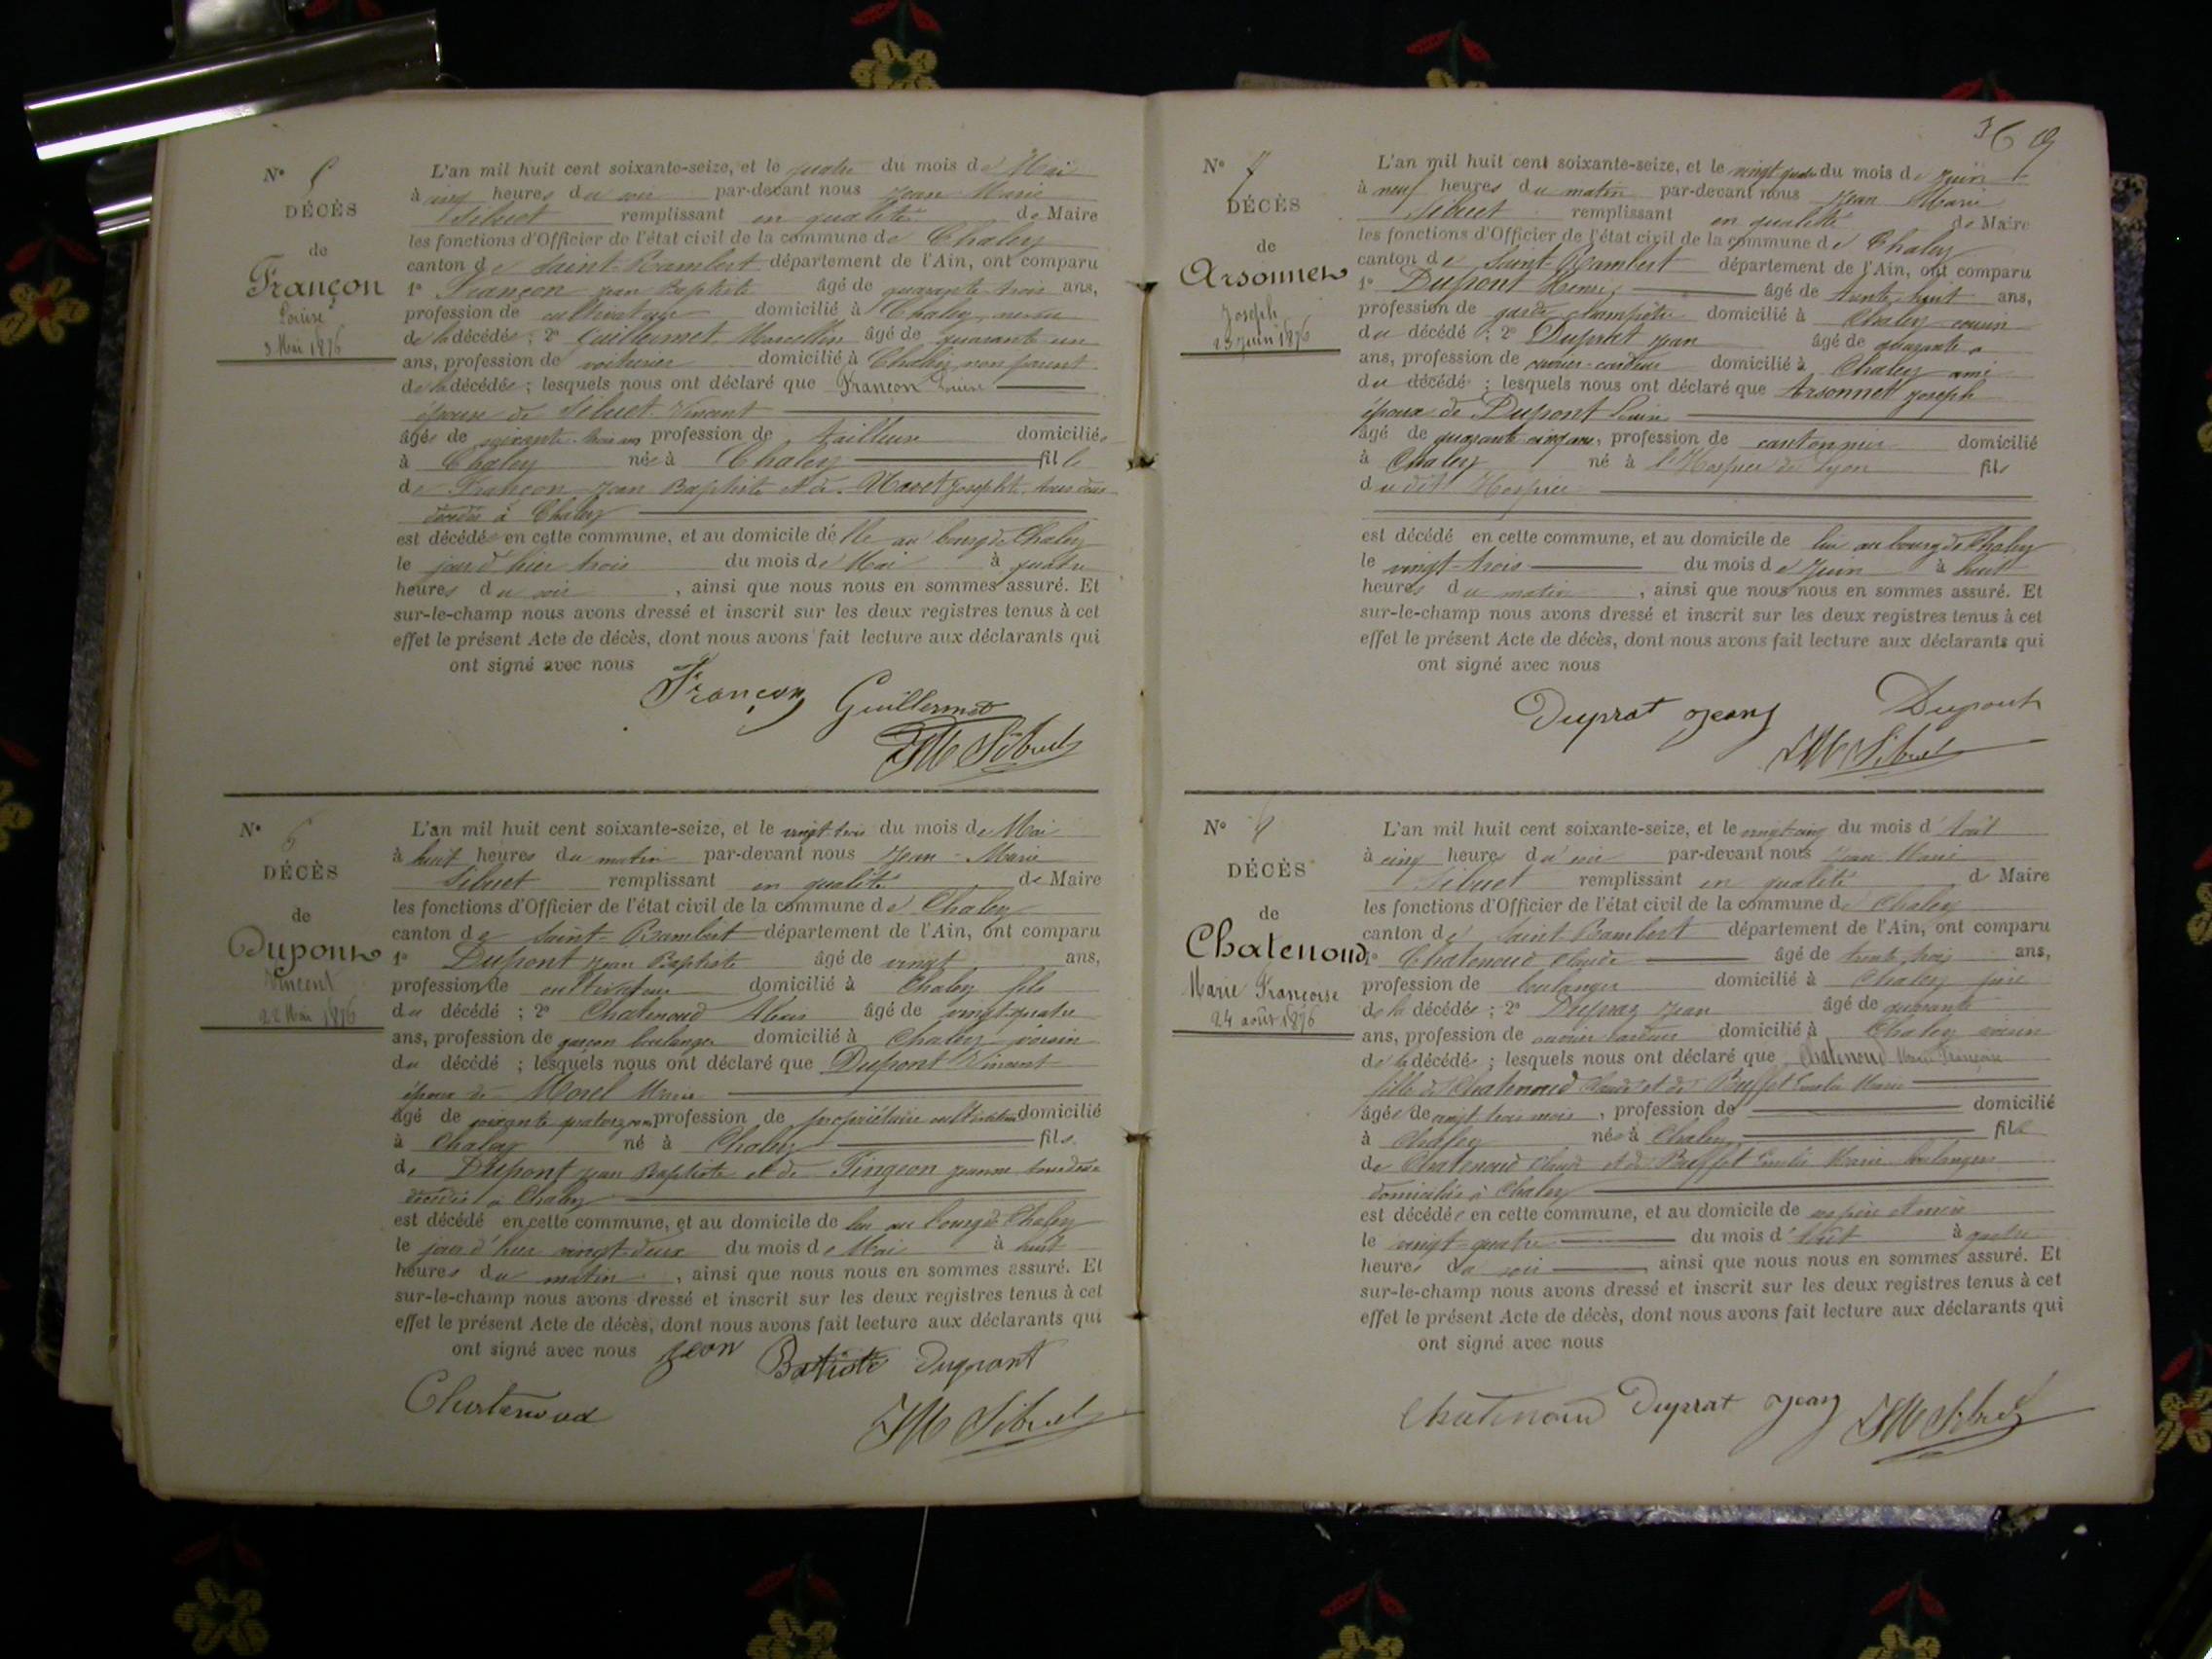 N° 5
DÉCÈS
de
Françon
Louise
3 Mai 1876
L'an mil huit cent soixante-seize, et le quatre du mois de Mai
à cinq heures du soir par-devant nous Jean Marie
Sibuet remplissant en qualité de Maire
les fonctions d'Officier de l'état civil de la commune de Chaley
canton de Saint-Rambert département de l'Ain, ont comparu
1° Françon Jean Baptiste âgé de quarante trois ans,
profession de cultivateur domicilié à Chaley neveu
de la décédée ; 2° Guillermet Marcellin âgé de quarante un
ans, profession de voiturier domicilié à Chaley non parent
de la décédée ; lesquels nous ont déclaré que Françon Louise
épouse de Sibuet Vincent
âgée de soixante-trois ans profession de tailleuse domiciliée
à Chaley née à Chaley fille
de Françon Jean Baptiste et de Mavet Josephte, tous deux
décédés à Chaley
est décédée en cette commune, et au domicile d'elle au bourg de Chaley
le jour d'hier trois du mois de Mai à quatre
heures du soir , ainsi que nous nous en sommes assuré. Et
sur-le-champ nous avons dressé et inscrit sur les deux registres tenus à cet
effet le présent Acte de décès, dont nous avons fait lecture aux déclarants qui
ont signé avec nous
Françon Guillermet
JM Sibuet
N° 6
DÉCÈS
de
Dupont
Vincent
22 Mai 1876
L'an mil huit cent soixante-seize, et le vingt-trois du mois de Mai
à huit heures du matin par-devant nous Jean-Marie
Sibuet remplissant en qualité de Maire
les fonctions d'Officier de l'état civil de la commune de Chaley
canton de Saint-Rambert département de l'Ain, ont comparu
1° Dupont Jean Baptiste âgé de vingt ans,
profession de cultivateur domicilié à Chaley fils
du décédé ; 2° Chatenoud Alexis âgé de vingt-quatre
ans, profession de garçon boulanger domicilié à Chaley voisin
du décédé ; lesquels nous ont déclaré que Dupont Vincent
époux de Morel Marie
âgé de soixante quatorze ans profession de propriétaire cultivateur domicilié
à Chaley né à Chaley fils
de Dupont Jean Baptiste et de Tingeon Jeanne tous deux
décédés à Chaley
est décédé en cette commune, et au domicile de lui au bourg de Chaley
le jour d'hier vingt-deux du mois de Mai à huit
heures du matin , ainsi que nous nous en sommes assuré. Et
sur-le-champ nous avons dressé et inscrit sur les deux registres tenus à cet
effet le présent Acte de décès, dont nous avons fait lecture aux déclarants qui
ont signé avec nous Jean Batiste Dupont
Chatenoud
JM Sibuet
369
N° 7
DÉCÈS
de
Arsonnet
Joseph
23 Juin 1876
L'an mil huit cent soixante-seize, et le vingt quatre du mois de Juin
à neuf heures du matin par-devant nous Jean Marie
Sibuet remplissant en qualité de Maire
les fonctions d'Officier de l'état civil de la commune de Chaley
canton de Saint-Rambert département de l'Ain, ont comparu
1° Dupont Henri, âgé de trente huit ans,
profession de garde champêtre domicilié à Chaley cousin
du décédé ; 2° Duprat Jean âgé de quarante
ans, profession de ouvrier-cardeur domicilié à Chaley ami
du décédé ; lesquels nous ont déclaré que Arsonnet Joseph
époux de Dupont Louise
âgé de quarante cinq ans, profession de cantonnier domicilié
à Chaley né à l'Hospice de Lyon fils
du dit Hospice
est décédé en cette commune, et au domicile de lui au bourg de Chaley
le vingt-trois du mois de Juin à huit
heures du matin , ainsi que nous nous en sommes assuré. Et
sur-le-champ nous avons dressé et inscrit sur les deux registres tenus à cet
effet le présent Acte de décès, dont nous avons fait lecture aux déclarants qui
ont signé avec nous
Duprat Jean Dupont
JM Sibuet
N° 8
DÉCÈS
de
Chatenoud
Marie Françoise
24 août 1876
L'an mil huit cent soixante-seize, et le vingt-cinq du mois d'Août
à cinq heures du soir par-devant nous Jean Marie
Sibuet remplissant en qualité de Maire
les fonctions d'Officier de l'état civil de la commune de Chaley
canton de Saint-Rambert département de l'Ain, ont comparu
1° Chatenoud Claude âgé de trente trois ans,
profession de boulanger domicilié à Chaley père
de la décédée ; 2° Dupraz Jean âgé de quarante
ans, profession de ouvrier cardeur domicilié à Chaley voisin
de la décédée ; lesquels nous ont déclaré que Chatenoud Marie Françoise
fille de Chatenoud Claude et de Buffet Emilie Marie
âgée de vingt trois mois , profession de domicilié
à Chaley née à Chaley fille
de Chatenoud Claude et de Buffet Emilie Marie boulangers
domiciliés à Chaley
est décédée en cette commune, et au domicile de ses père et mère
le vingt-quatre du mois d'Août à quatre
heures du soir , ainsi que nous nous en sommes assuré. Et
sur-le-champ nous avons dressé et inscrit sur les deux registres tenus à cet
effet le présent Acte de décès, dont nous avons fait lecture aux déclarants qui
ont signé avec nous
Chatenoud Duprat Jean JM Sibuet